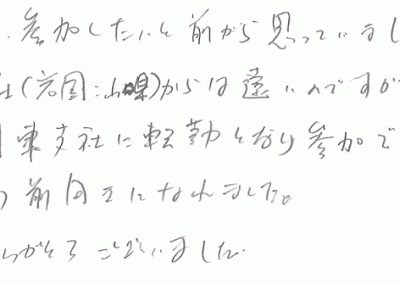 、参加したいと前から思っていまし
社(岩国:山県)からは遠いのですが
関東支社に転勤となり参加で
前向きになれました。
りがとうございました